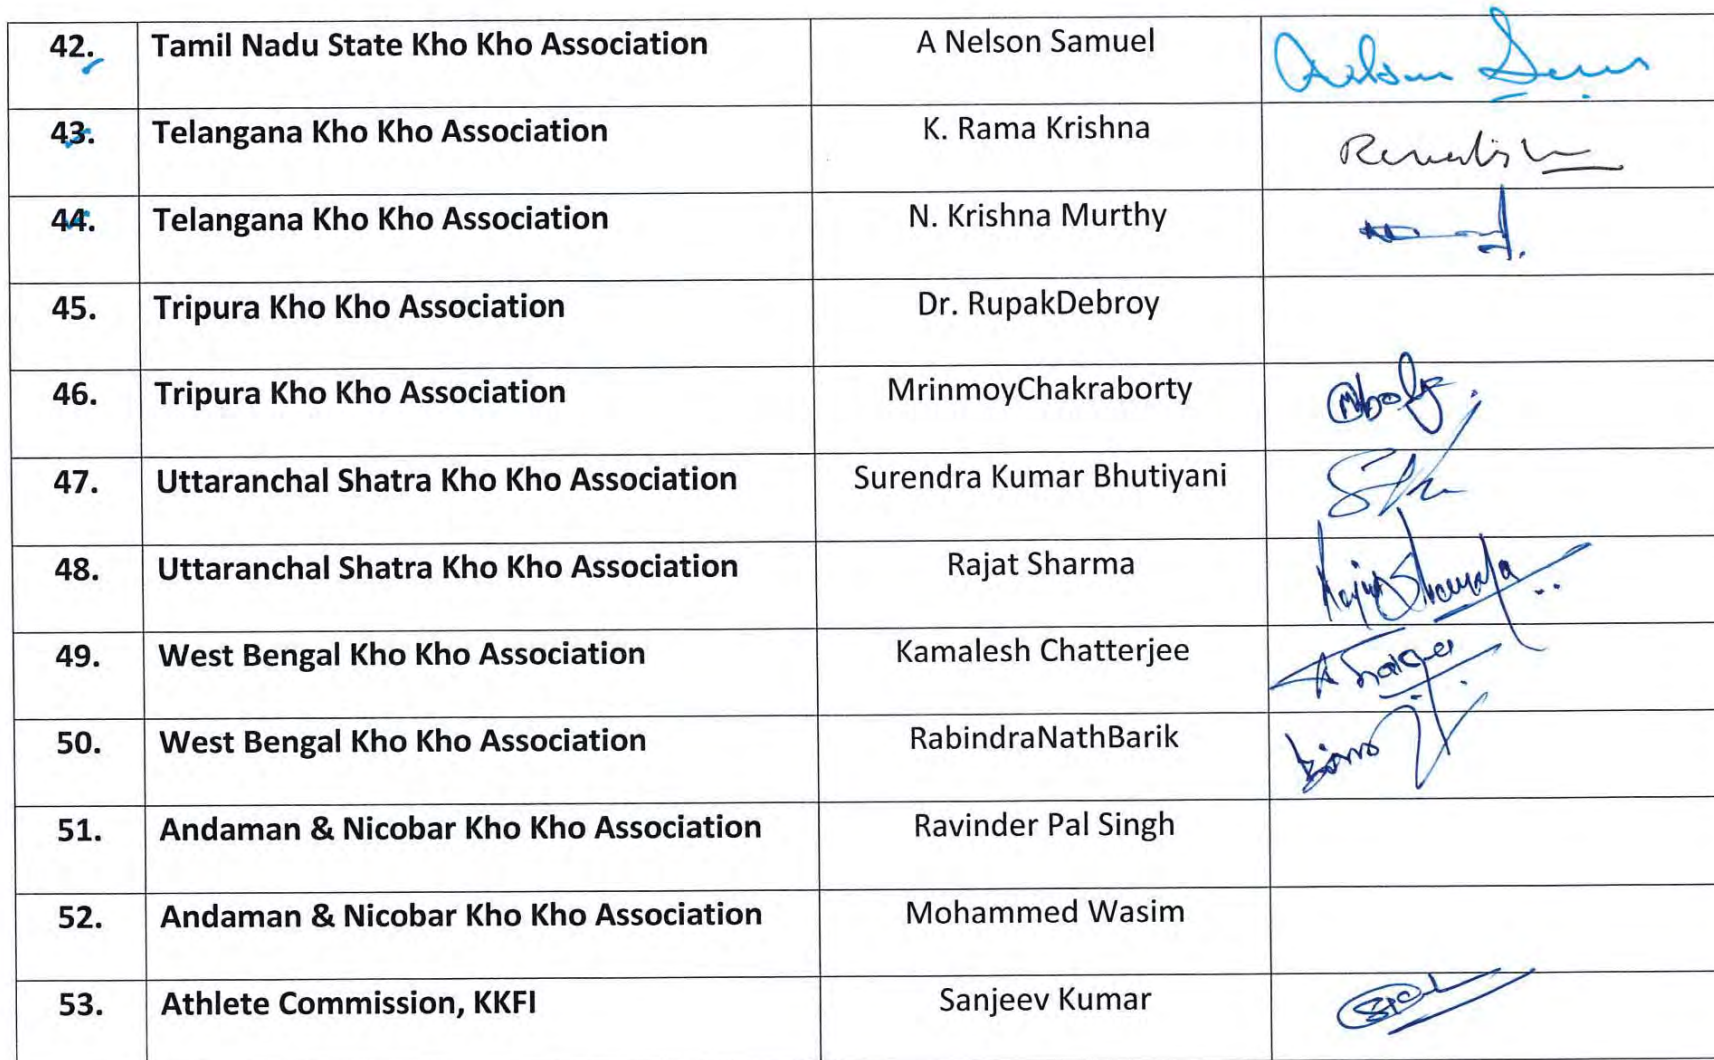 42. Tamil Nadu State Kho Kho Association A Nelson Samuel
43. Telangana Kho Kho Association K. Rama Krishna
44. Telangana Kho Kho Association N. Krishna Murthy
45. Tripura Kho Kho Association Dr. RupakDebroy
46. Tripura Kho Kho Association MrinmoyChakraborty
47. Uttaranchal Shatra Kho Kho Association Surendra Kumar Bhutiyani
48. Uttaranchal Shatra Kho Kho Association Rajat Sharma
49. West Bengal Kho Kho Association Kamalesh Chatterjee
50. West Bengal Kho Kho Association RabindraNathBarik
51. Andaman & Nicobar Kho Kho Association Ravinder Pal Singh
52. Andaman & Nicobar Kho Kho Association Mohammed Wasim
53. Athlete Commission, KKFI Sanjeev Kumar